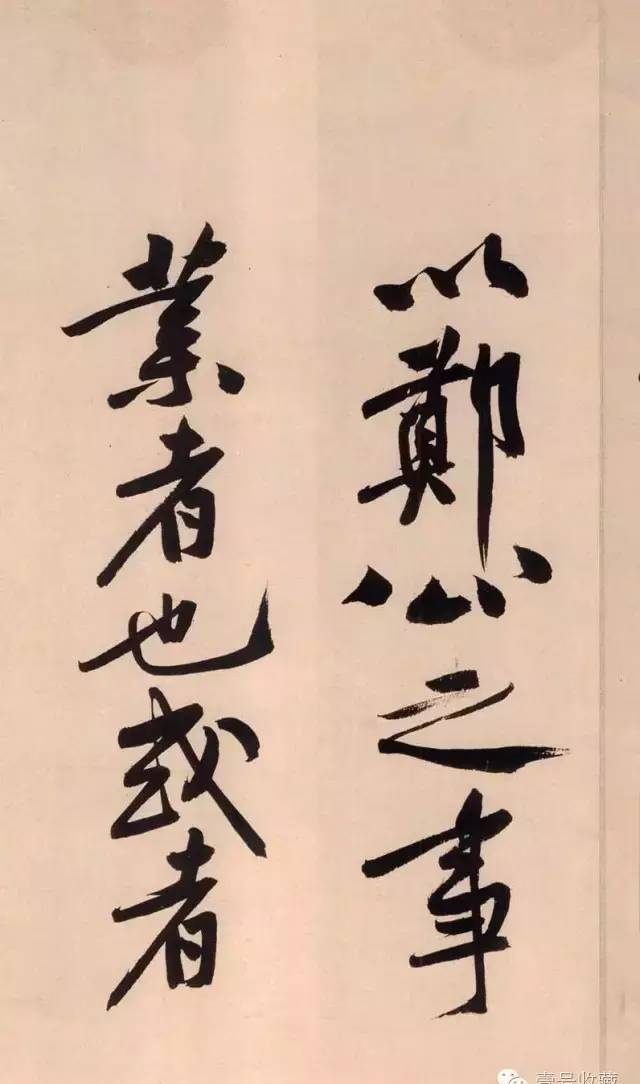 以鄭公之事
業者也或者
壹号收藏